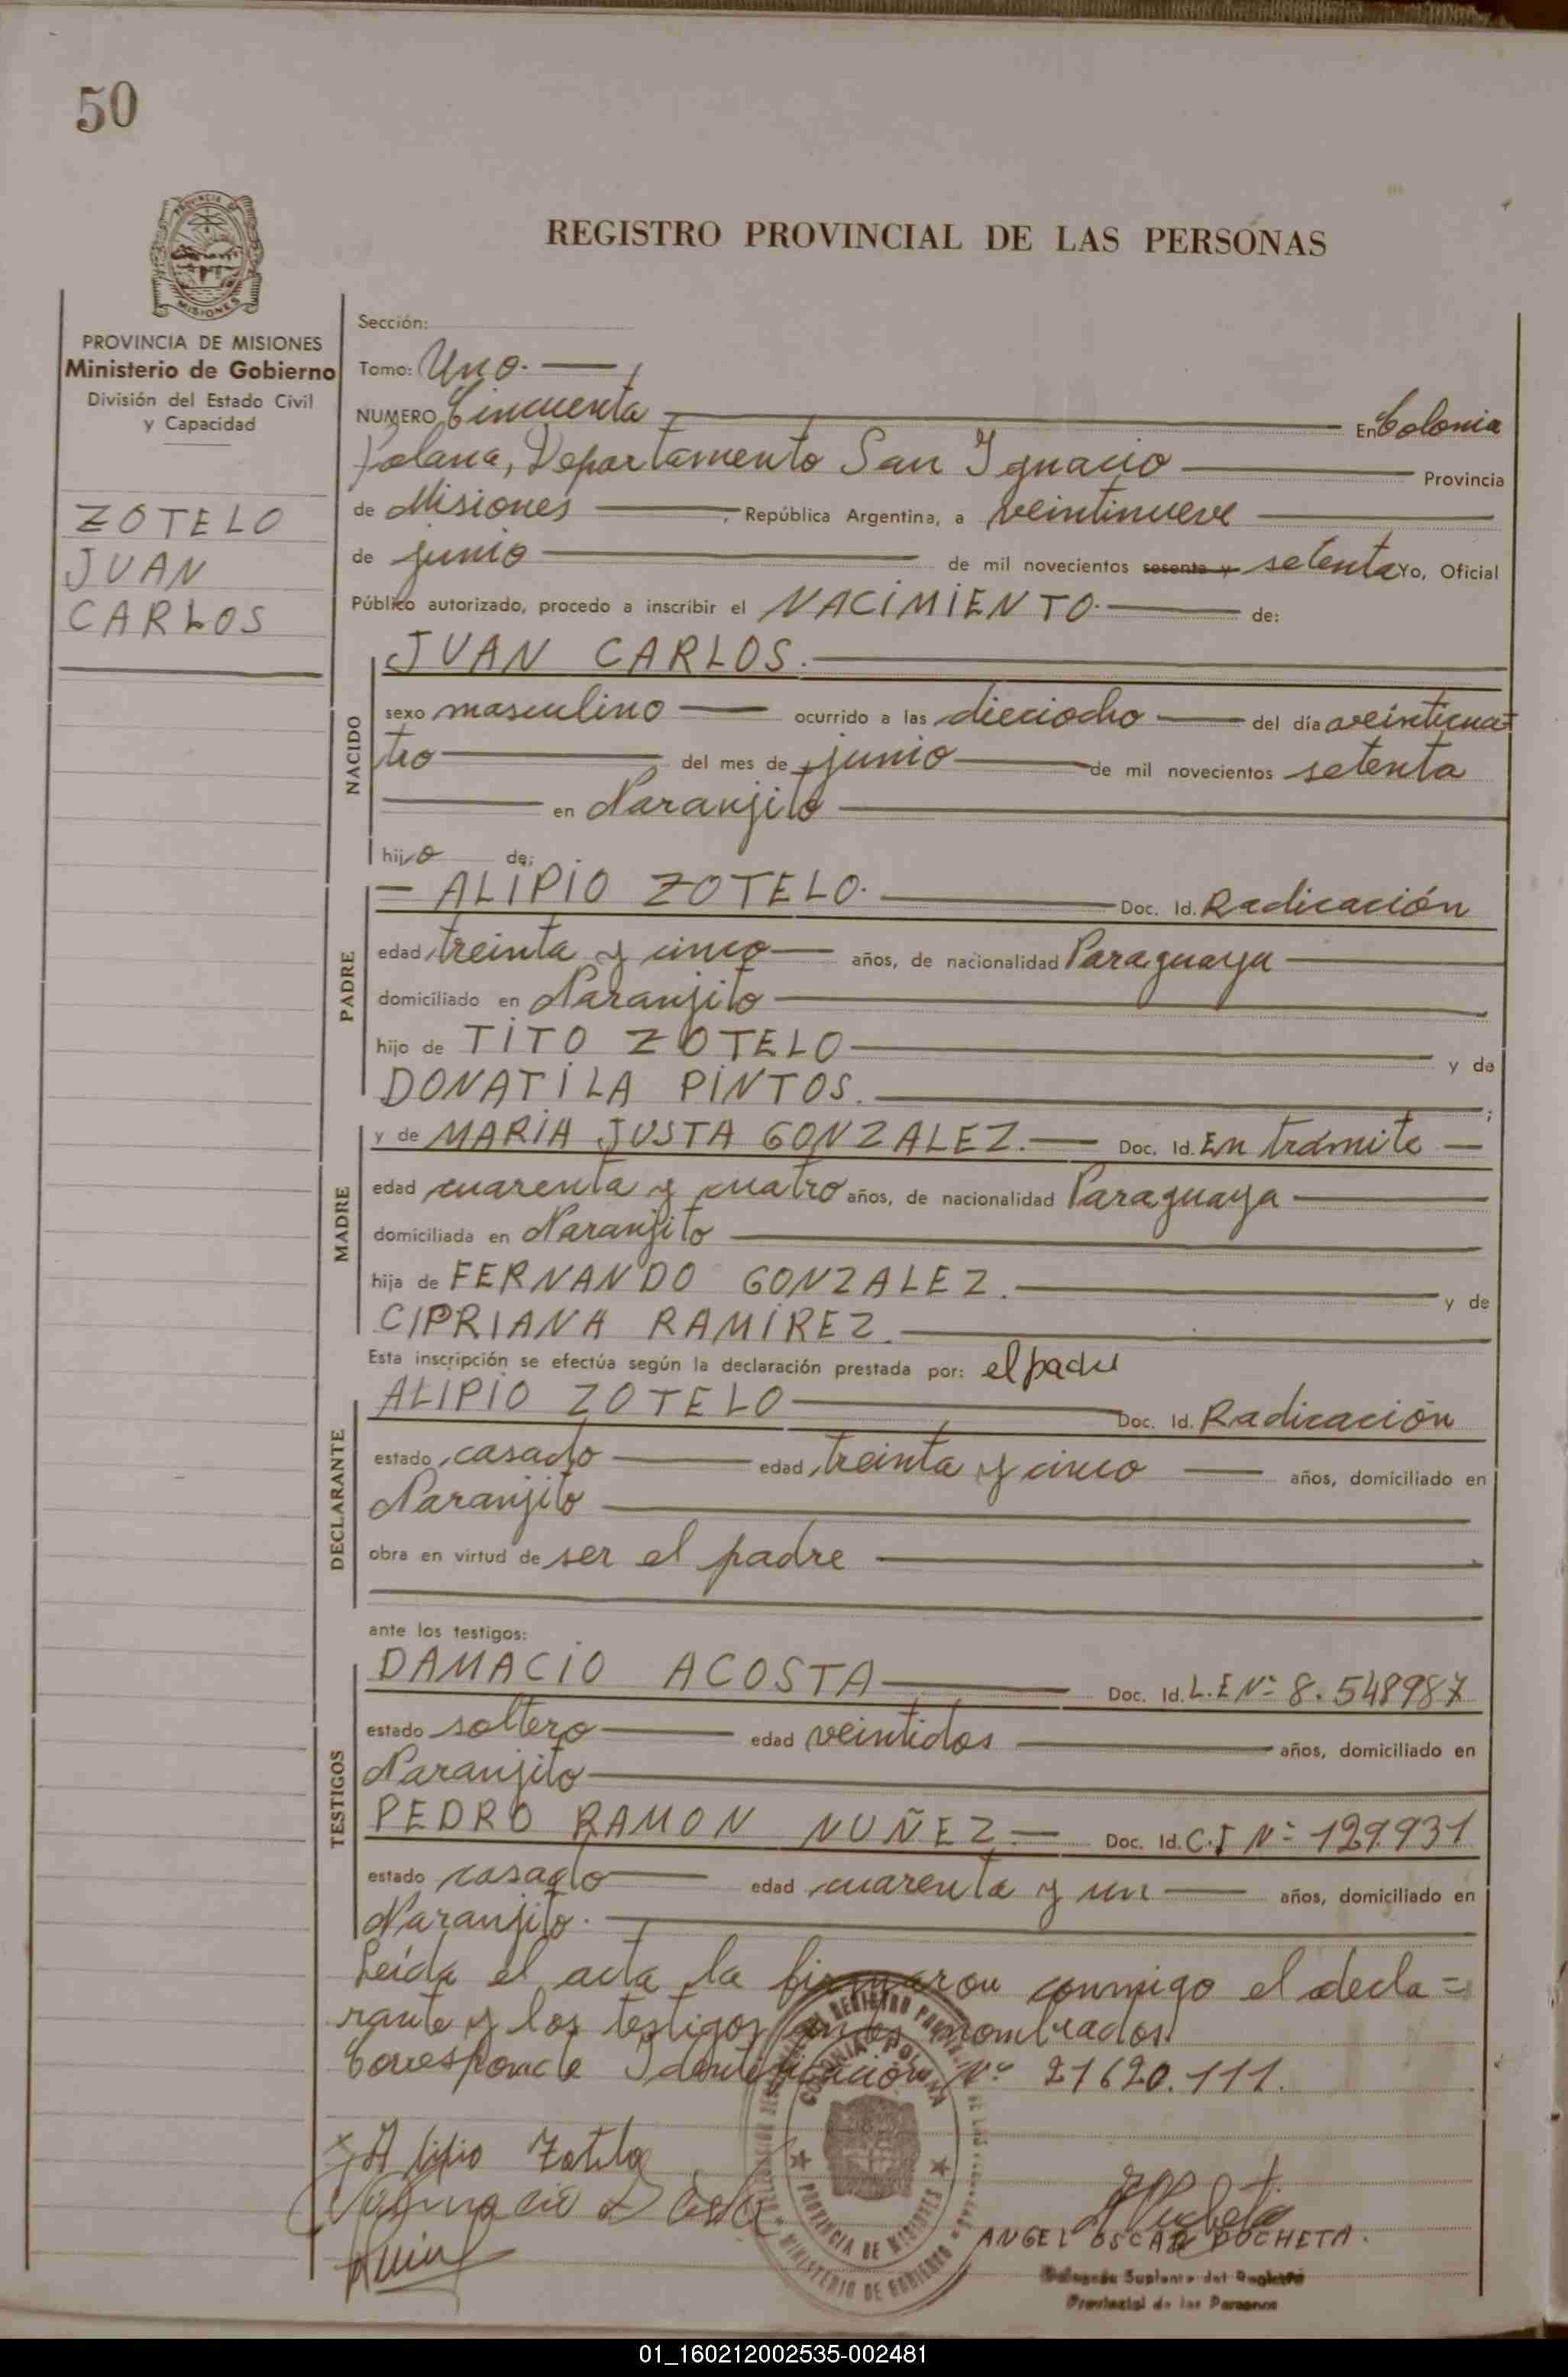 50
PROVINCIA DE
MISIONES
REGISTRO PROVINCIAL DE LAS PERSONAS
PROVINCIA DE MISIONES
Ministerio de Gobierno
División del Estado Civil
y Capacidad
ZOTELO
JUAN
CARLOS
Sección:
Tomo: Uno.
NUMERO Cincuenta En Colonia
Polana, Departamento San Ignacio Provincia
de Misiones, República Argentina, a veintinueve
de junio de mil novecientos sesenta y setenta Yo, Oficial
Público autorizado, procedo a inscribir el NACIMIENTO. de:
NACIDO
JUAN CARLOS.
sexo masculino ocurrido a las dieciocho del día veinticua
tro del mes de junio de mil novecientos setenta
en Naranjito
hijo de:
PADRE
ALIPIO ZOTELO. Doc. Id. Radicación
edad treinta y cinco años, de nacionalidad Paraguaya
domiciliado en Naranjito
hijo de TITO ZOTELO y de
DONATILA PINTOS. ;
MADRE
y de MARIA JUSTA GONZALEZ. Doc. Id. En trámite
edad cuarenta y cuatro años, de nacionalidad Paraguaya
domiciliada en Naranjito
hija de FERNANDO GONZALEZ. y de
CIPRIANA RAMIREZ.
Esta inscripción se efectúa según la declaración prestada por: el padre
DECLARANTE
ALIPIO ZOTELO Doc. Id. Radicación
estado casado edad treinta y cinco años, domiciliado en
Naranjito
obra en virtud de ser el padre
ante los testigos:
TESTIGOS
DAMACIO ACOSTA Doc. Id. L.E Nº 8.548987
estado soltero edad veintidos años, domiciliado en
Naranjito
PEDRO RAMON NUÑEZ. Doc. Id. C.I Nº 129.931
estado casado edad cuarenta y un años, domiciliado en
Naranjito.
Leída el acta la firmaron conmigo el decla=
rante y los testigos antes nombrados.
Corresponde Identificación Nº 21620.111.
COLONIA POLANA
PROVINCIA DE MISIONES
MINISTERIO DE GOBIERNO
Alipio Zotelo
ANGEL OSCAR POCHETA.
Delegado Suplente del Registro
Provincial de las Personas
01_160212002535-002481